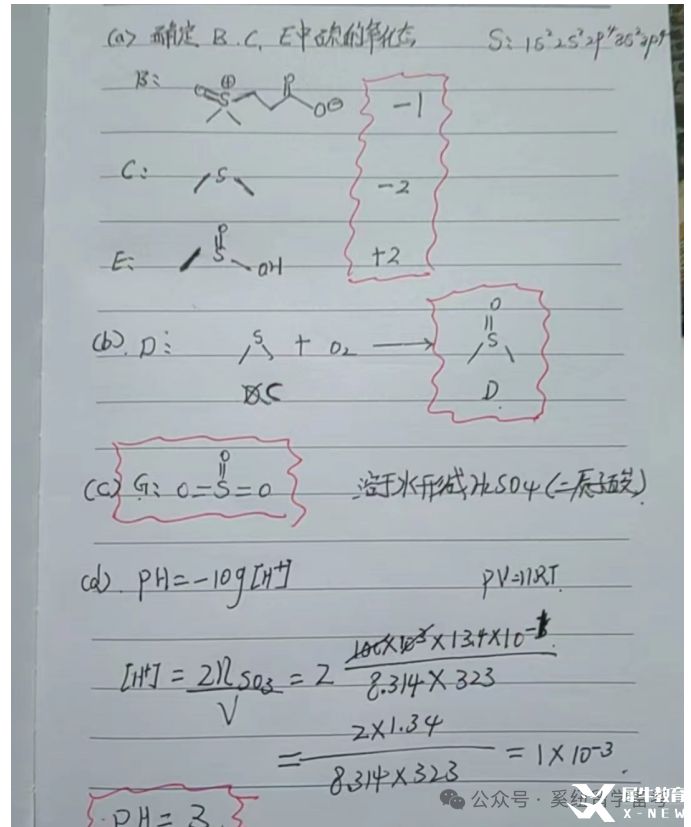 (a) 确定 B.C. E中硫的氧化态 S: 1s² 2s² 2p⁴ 3s² 3p⁴
B: O S ⊕ O O⊖ -1
C: S -2
E: O S OH +2
(b). D: S + O₂ → O S
C D
(c) G: O=S=O O 溶于水形成H₂SO₄(二质子酸)
(d). PH=-log[H⁺] PV=nRT.
[H⁺] = 2n SO₃ / V = 2 100×10³×13.4×10⁻¹ / 8.314×323
= 2×1.34 / 8.314×323 = 1×10⁻³.
PH = 3
公众号
犀牛教育
X-NEW